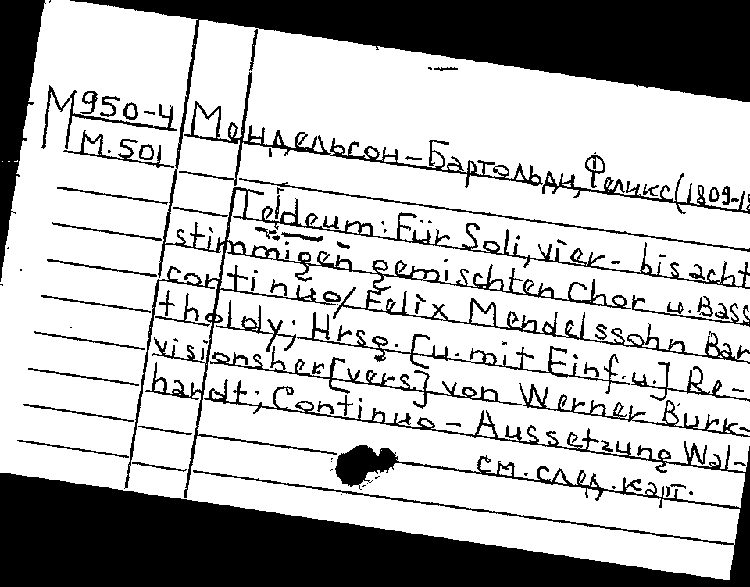 М950-4
М.501
Мендельсон-Бартольди, Феликс (1809-18
Te deum: Für Soli, vier- bis acht
stimmigen gemischten Chor u. Bass
continuo / Felix Mendelssohn Bar
tholdy; Hrsg. [u. mit Einf. u.] Re-
visionsber[vers.] von Werner Burk-
hardt; Continuo-Aussetzung Wal-
см. след. карт.